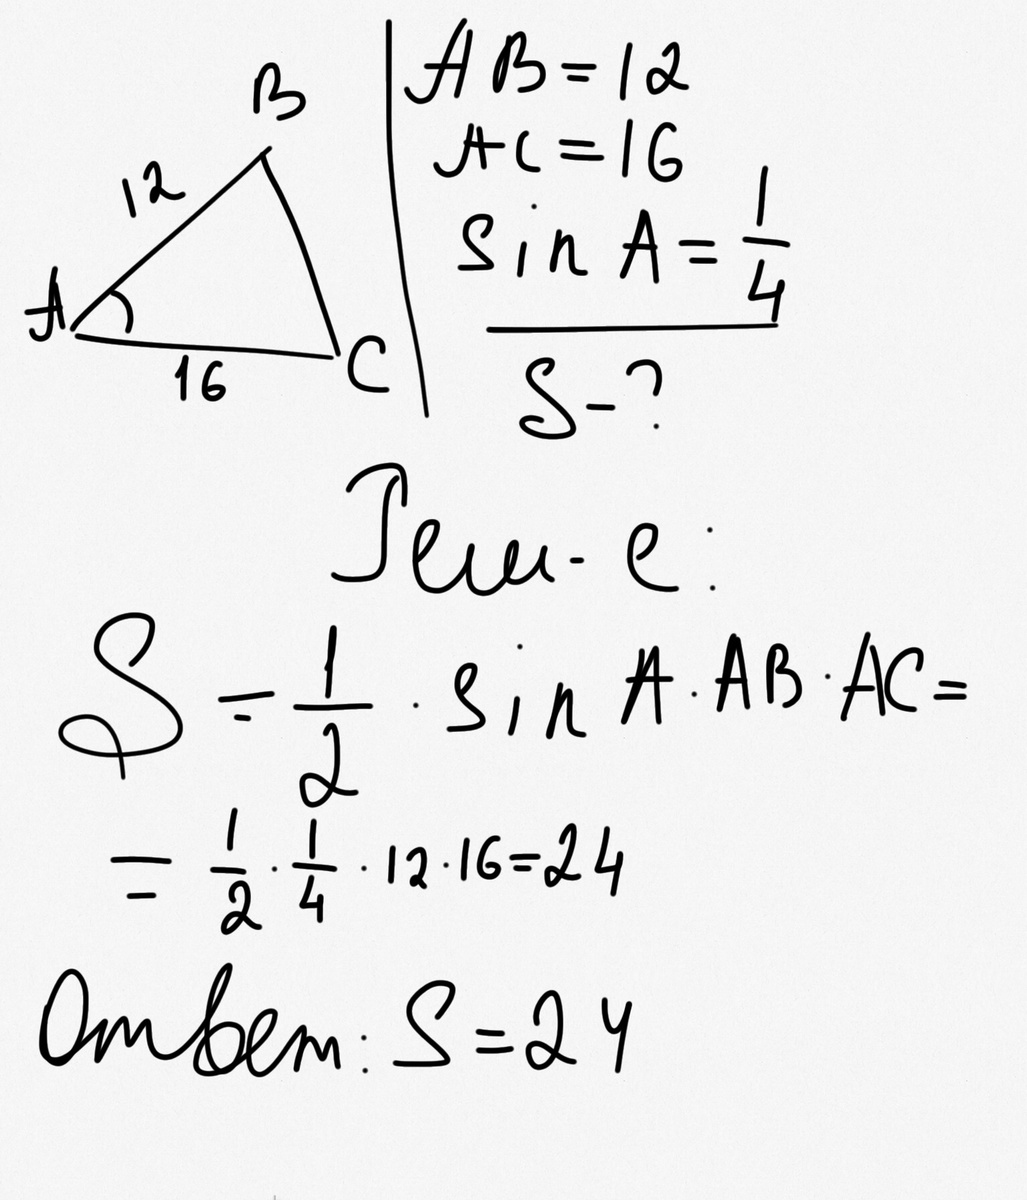 B
12
A
16
C
AB=12
AC=16
sin A = 1/4
S-?
Реш-е:
S = 1/2 · sin A · AB · AC =
= 1/2 · 1/4 · 12 · 16 = 24
Ответ: S=24